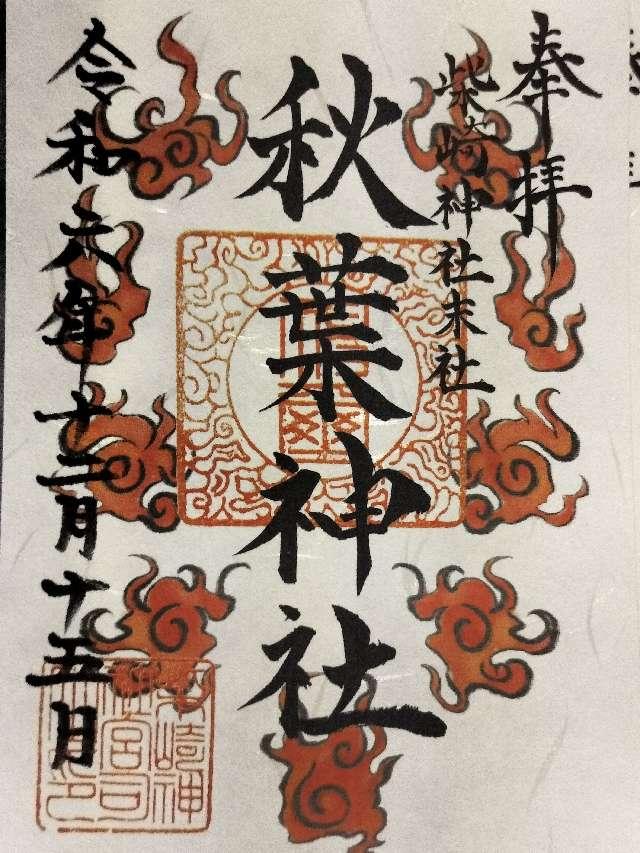 奉拝
柴崎神社末社
秋葉神社
令和六年十二月十五日